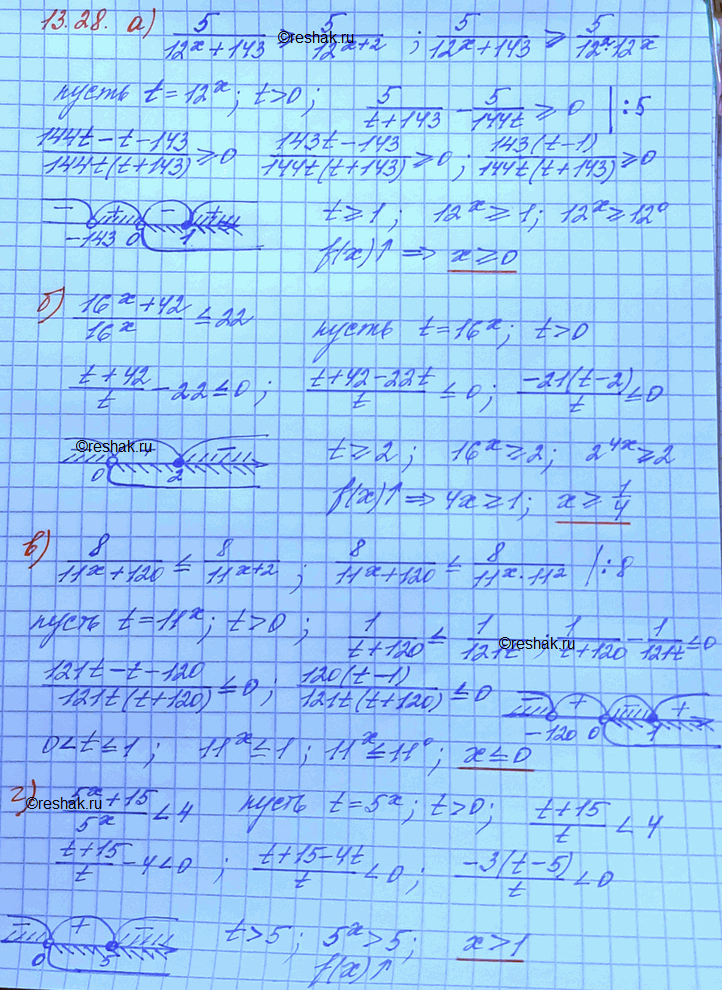 13.28. а) 5/(12^x+143) ≥ 5/12^(x+2) ; 5/(12^x+143) ≥ 5/(12²·12^x)
©reshak.ru
пусть t=12^x; t>0; 5/(t+143) - 5/(144t) ≥ 0 |:5
(144t-t-143)/(144t(t+143)) ≥ 0 (143t-143)/(144t(t+143)) ≥ 0; 143(t-1)/(144t(t+143)) ≥ 0
- + - +
-143 0 1
t≥1; 12^x≥1; 12^x≥12^0
f(x)↑ ⇒ x≥0
б) (16^x+42)/16^x ≤ 22 пусть t=16^x; t>0
(t+42)/t - 22≤0; (t+42-22t)/t ≤0; -21(t-2)/t ≤0
©reshak.ru
0 2
t≥2; 16^x≥2; 2^(4x)≥2
f(x)↑ ⇒ 4x≥1; x≥1/4
в) 8/(11^x+120) ≤ 8/11^(x+2) ; 8/(11^x+120) ≤ 8/(11^x·11²) |:8
пусть t=11^x; t>0; 1/(t+120) ≤ 1/(121t) ; 1/(t+120) - 1/(121t) ≤0
©reshak.ru
(121t-t-120)/(121t(t+120)) ≤0; 120(t-1)/(121t(t+120)) ≤0
- + - +
-120 0 1
0<t≤1; 11^x≤1; 11^x≤11^0; x≤0
г) (5^x+15)/5^x <4 пусть t=5^x; t>0; (t+15)/t <4
©reshak.ru
(t+15)/t -4<0; (t+15-4t)/t <0; -3(t-5)/t <0
- + -
0 5
t>5; 5^x>5; x>1
f(x)↑